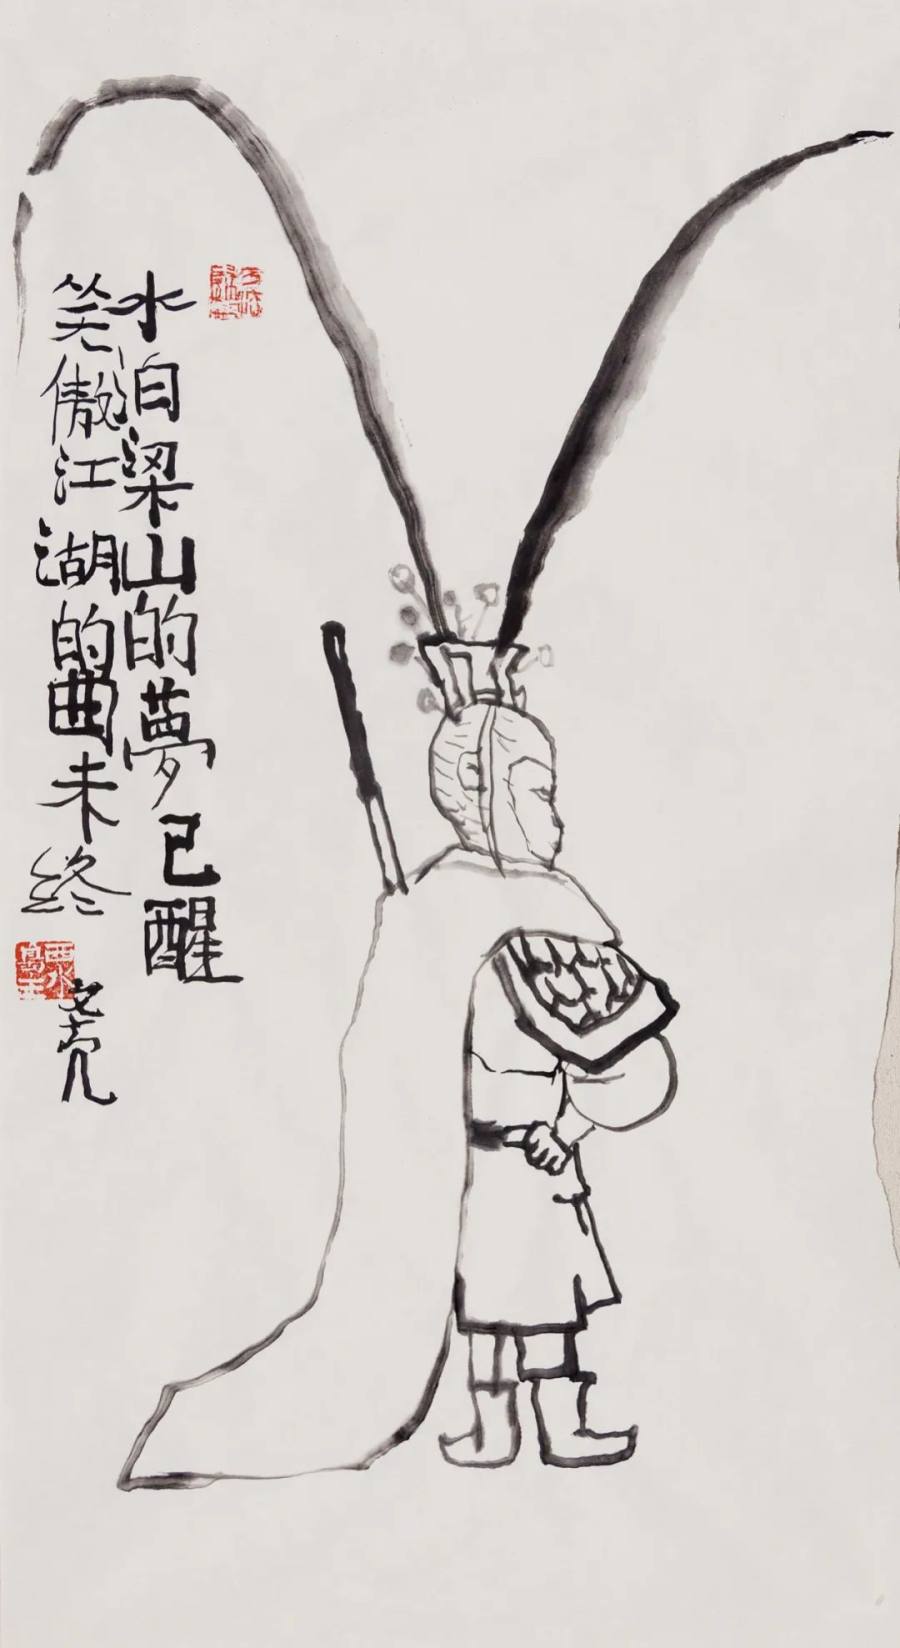 水泊梁山的夢已醒
笑傲江湖的曲未終
文亮